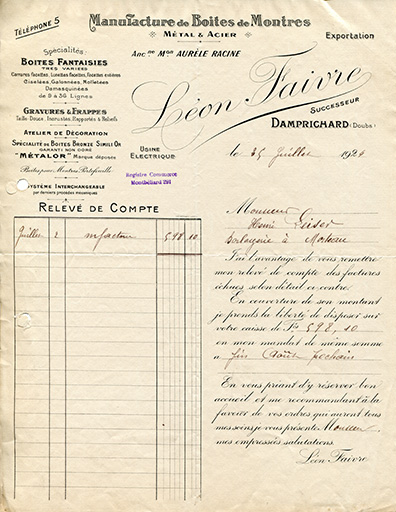 TÉLÉPHONE 5
Manufacture de Boîtes de Montres
MÉTAL & ACIER
Exportation
Anc.ne Mon AURÈLE RACINE
Léon Faivre
SUCCESSEUR
DAMPRICHARD (Doubs)
Spécialités:
BOITES FANTAISIES
TRÈS VARIÉES
Carrures facettes, Lunettes facettes, Facettes entières
Ciselées, Galonnées, Molletées
Damasquinées
de 9 à 36 Lignes
GRAVURES & FRAPPES
Taille Douce, Incrustés, Rapportés & Reliefs
ATELIER DE DÉCORATION
SPÉCIALITÉ DE BOITES BRONZE SIMILI OR
GARANTI NON DORÉ
"MÉTALOR" Marque déposée
Boîtes pour Montres Portefeuille
SYSTÈME INTERCHANGEABLE
par derniers procédés mécaniques
USINE
ÉLECTRIQUE
Registre Commerce
Montbéliard
le 25 Juillet 192
RELEVÉ DE COMPTE
Juillet 2 m/facture 598 10
Monsieur
Horlogerie à Morteau
J'ai l'avantage de vous remettre
mon relevé de compte des factures
échues selon détail ci-contre.
En couverture de son montant
je prends la liberté de disposer sur
votre caisse de Fs 598,10
en mon mandat de même somme
à fin Août prochain
En vous priant d'y réserver bon
accueil et me recommandant à la
faveur de vos ordres qui auront tous
mes soins je vous présente, Monsieur
mes empressées salutations.
Léon Faivre